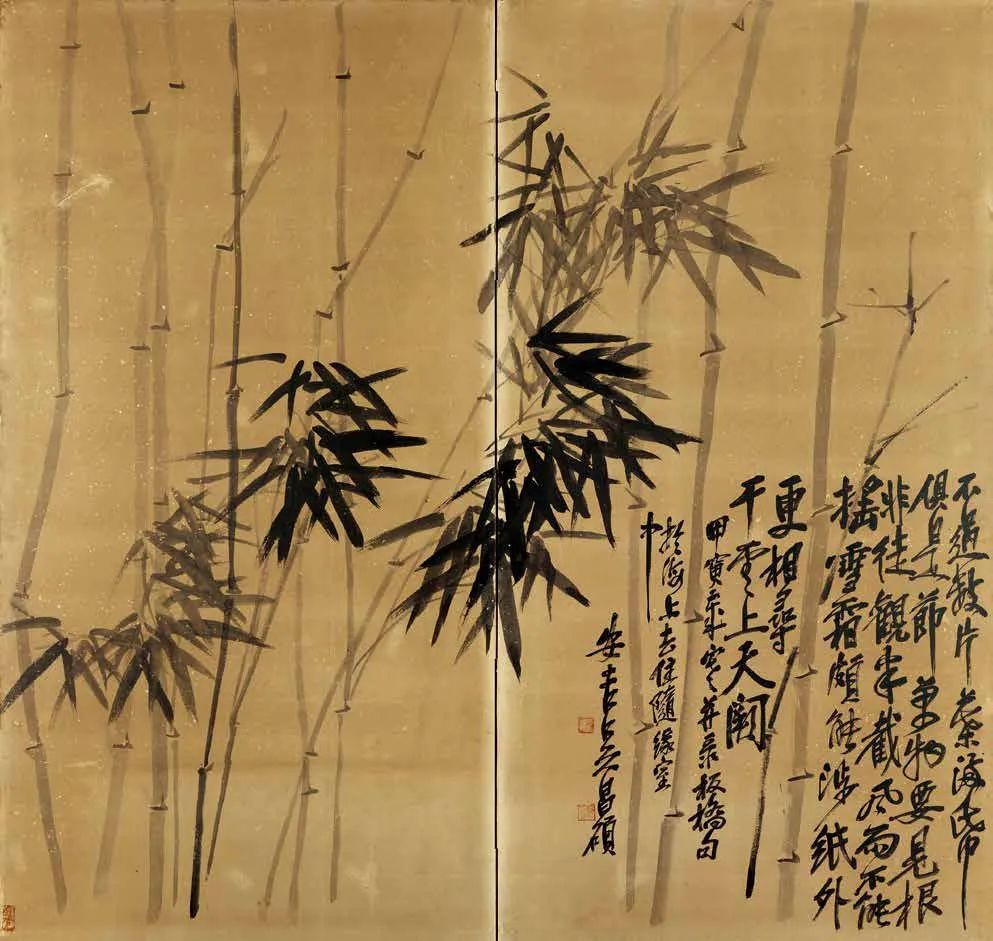 不過數片葉滿紙
俱是節萬物要見根
非徒觀半截風雨不能
搖雪霜頗能涉紙外
更相尋
干雲上天闕
甲寅 并录板橋句
於海上去住隨緣室
中
安吉吳昌碩